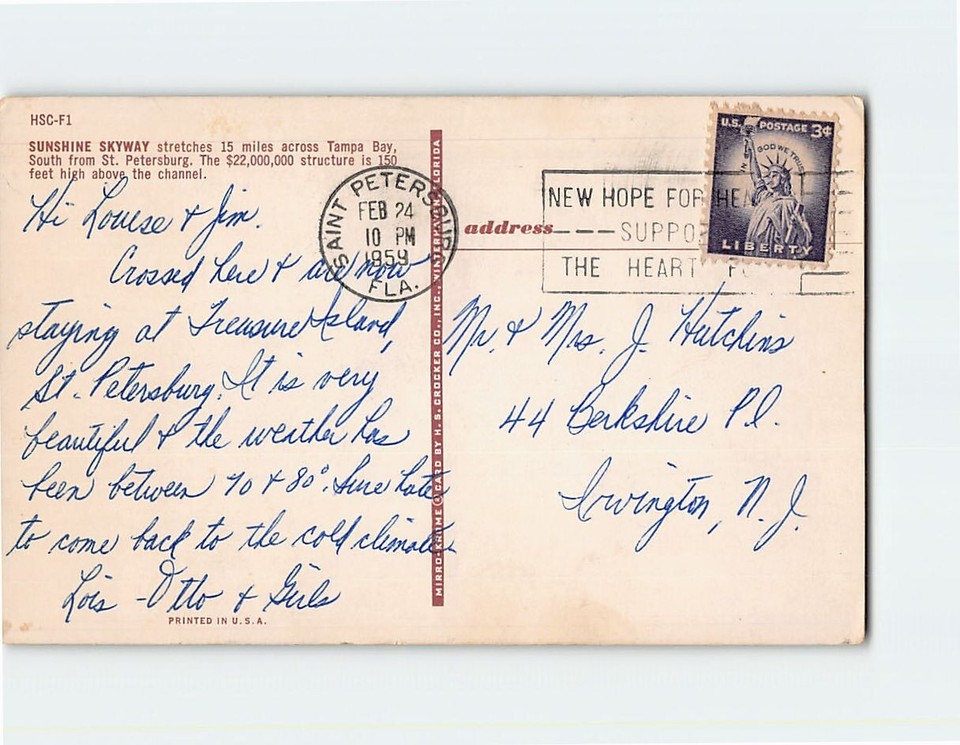 HSC-F1
SUNSHINE SKYWAY stretches 15 miles across Tampa Bay,
South from St. Petersburg. The $22,000,000 structure is 150
feet high above the channel.
Hi Louise & Jim.
Crossed here & are now
staying at Treasure Island,
St. Petersburg. It is very
beautiful & the weather has
been between 70 & 80°. Sure hate
to come back to the cold climate.
Lois - Otto & Girls
PRINTED IN U.S.A.
MIRRO-KROME CARD BY H. S. CROCKER CO., INC., FLORIDA
SAINT PETERSBURG
FEB 24
10 PM
1959
FLA.
address
NEW HOPE FOR HEA
SUPPO
THE HEART FU
U.S. POSTAGE 3¢
IN GOD WE TRUST
LIBERTY
Mr. & Mrs. J. Hutchins
44 Berkshire Pl.
Irvington, N. J.